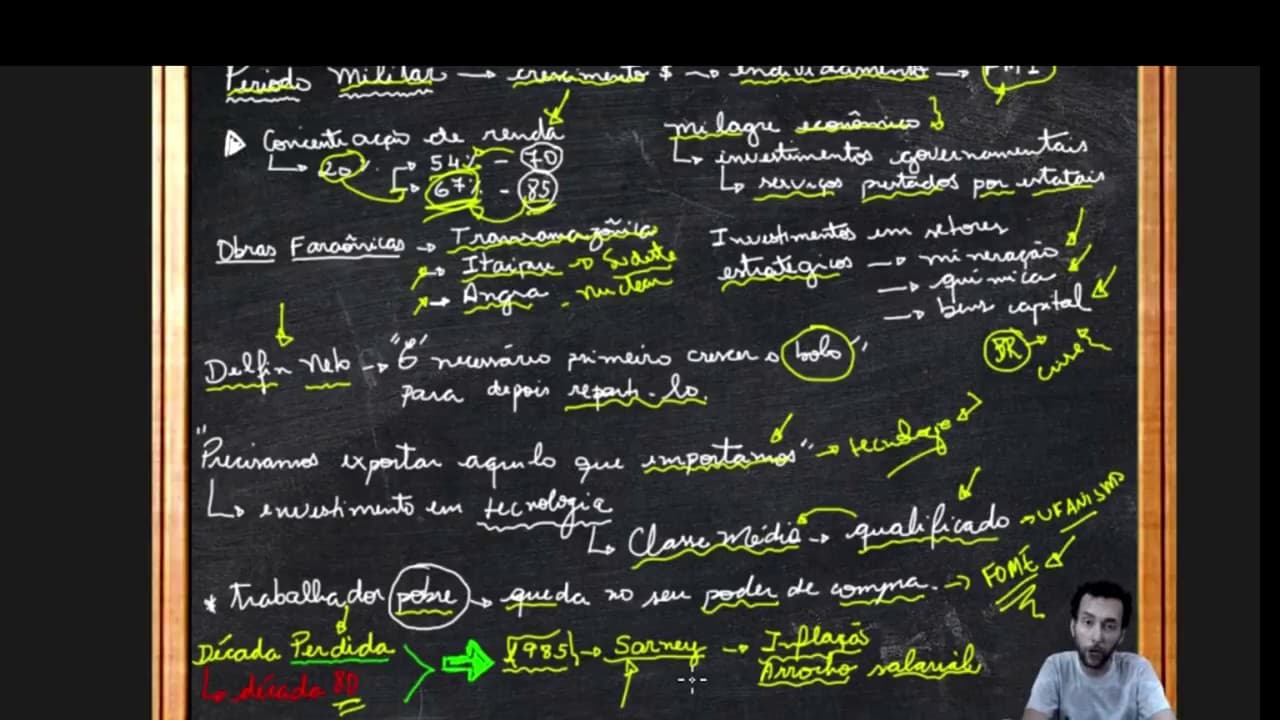 Período Militar → crescimento $ → endividamento → FMI
▷ Concentração de renda
↳ 20% → 54% - 70
→ 67% - 85
milagre econômico }
↳ investimentos governamentais
↳ serviços prestados por estatais
Obras Faraônicas → Transamazônica
→ Itaipu → Sudeste
→ Angra - nuclear
Investimentos em setores
estratégicos → mineração
→ química
→ bens capital
BR → crise
Delfin Neto → "É necessário primeiro crescer o bolo"
para depois reparti-lo.
"Precisamos exportar aquilo que importamos" → tecnologia
↳ investimento em tecnologia
↳ Classe média → qualificado → UFANISMO
* trabalhador pobre → queda no seu poder de compra. → FOME
Década Perdida
↳ década 80
1985 → Sarney → Inflação
Arrocho salarial